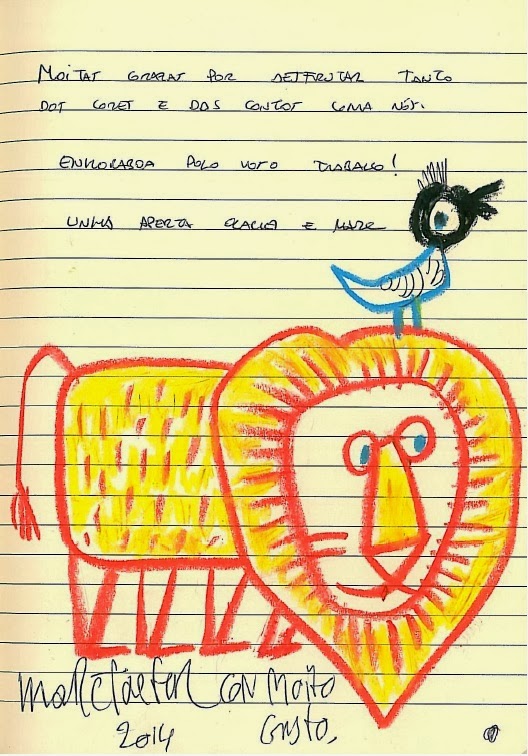 MOITAS GRAZAS POR DESFRUTAR TANTO
DOS CORES E DOS CONTOS COMA NÓS.
ENHORABOA POLO VOSO TRABALLO!
UNHA APERTA E MARC
Marc Taeger con moito
2014 gusto,